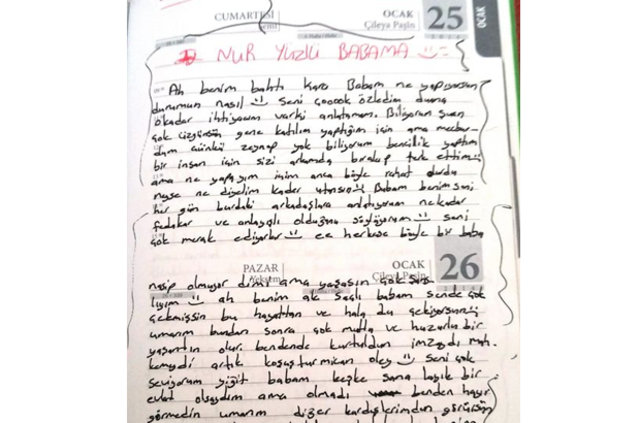 CUMARTESİ
OCAK
Çileya Paşin
25
OCAK
NUR YÜZLÜ BABAMA
Ah benim bahtı kara Babam ne yapıyorsun
durumun nasıl seni çooook özledim sana
okadar ihtiyacım varki anlatamam. Biliyorum şuan
çok üzgünsün gene katılım yaptığım için ama mecbur-
dum çünkü zeynep yok biliyorum bencillik yaptım
bir insan için sizi arkamda bırakıp terk ettim
ama ne yapayım içim anca böyle rahat durdu
neyse ne diyelim kader utansın Babam benim seni
her gün burdaki arkadaşlara anlatıyorum ne kadar
fedakar ve anlayışlı olduğunu söylüyorum seni
çok merak ediyorlar ee herkese böyle bir baba
PAZAR
Yekşem
OCAK
Çileya Paşin
26
nasip olmuyor dimi ama yaşasın çok şans
lıyım ah benim ak Saçlı babam sende çok
çekmişsin bu hayattan ve hala da çekiyorsun
umarım bundan sonra çok mutlu ve huzurlu bir
yaşantın olur. bendende kurtuldun imzaydı mah.
kemeydi artık koşuşturmican oley seni çok
seviyorum yiğit babam keşke sana layık bir
evlat olsaydım ama olmadı benden hayır
görmedin umarım diğer kardeşlerimden görürsün